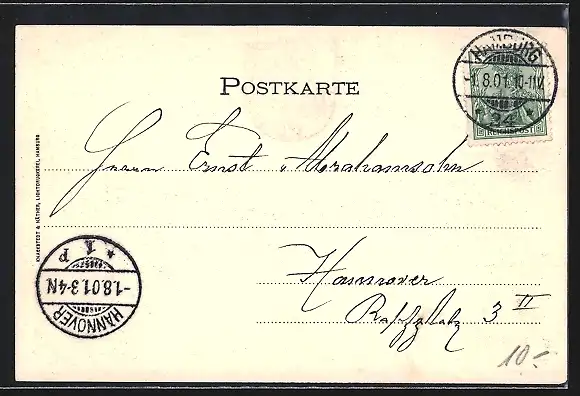 HAMBURG
-1.8.01.10-11V.
* 24 *
REICHSPOST
POSTKARTE
Herrn Ernst Abrahamsohn
Hannover
3 II
KNACKSTEDT & NÄTHER, LICHTDRUCKEREI, HAMBURG
* 1 P
-1.8.01.3-4N
HANNOVER
10.-